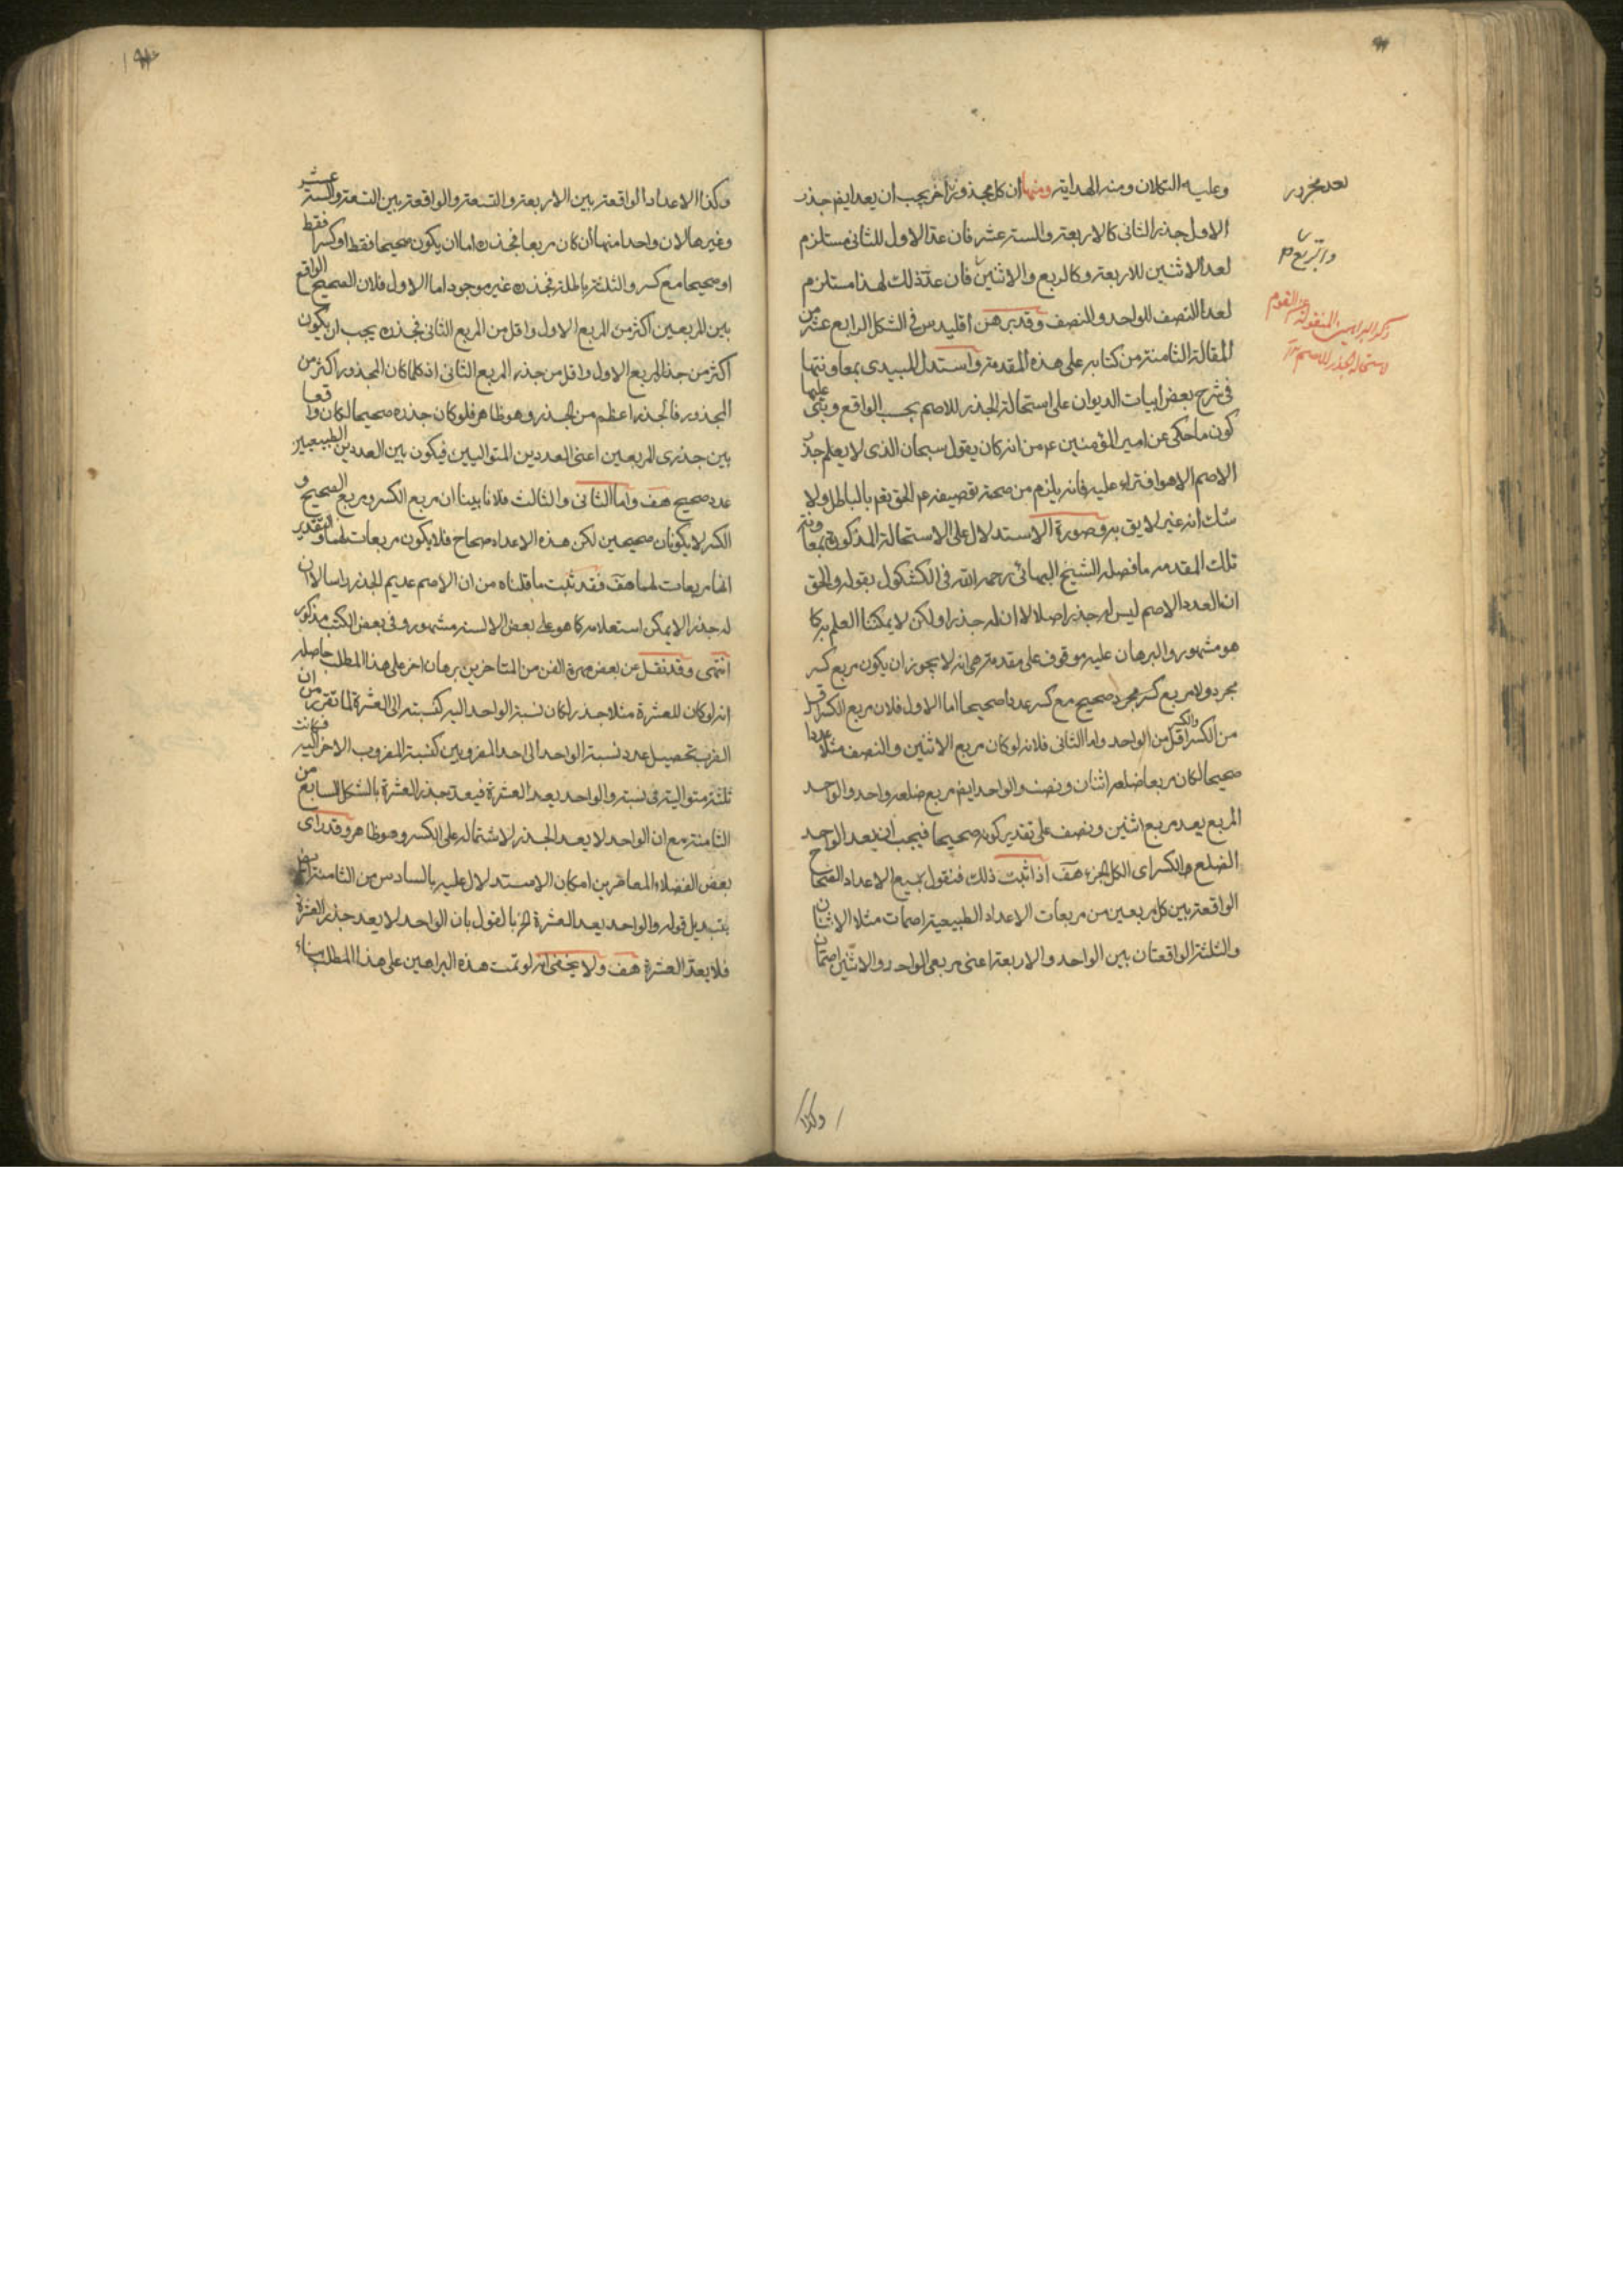 وعليه التكلان ومنه الهداية ومنها ان كل مجذور آخر يجب ان يعد ايضا جذر
الاول جذر الثانى كالاربعة والستة عشر فان عد الاول للثانى مستلزم
لعد الاثنين للاربعة وكالربع والاثنين فان عد ذلك لهذا مستلزم
لعد النصف للواحد والنصف وقد برهن اقليدس فى الشكل الرابع عشر من
المقالة الثامنة من كتابه على هذه المقدمة واستدل المبيدى بمعاونتها
فى شرح بعض ابيات الديوان على استحالة الجذر للاصم بحسب الواقع وبنى عليها
كون ما حكى عن امير المؤمنين ع من انه كان يقول سبحان الذى لا يعلم جذر
الاصم الا هو افتراء عليه فانه يلزم من صحته توصيفه ع الحق تعم بالباطل ولا
شك انه غير لايق به وصورة الاستدلال على الاستحالة المذكورة بمعاونة
تلك المقدمه ما فصله الشيخ البهائى رحمه الله فى الكشكول بقوله والحق
ان العدد الاصم ليس له جذر اصلا لا ان له جذرا ولكن لا يمكننا العلم به كما
هو مشهور والبرهان عليه موقوف على مقدمة هى انه لا يجوز ان يكون مربع كسر
مجرد ولا مربع كسر مجرد صحيح مع كسر عددا صحيحا اما الاول فلان مربع الكسر اقل
من الكسر والكسر اقل من الواحد واما الثانى فلانه لو كان مربع الاثنين والنصف مثلا عددا
صحيحا لكان مربعا ضلعه اثنان ونصف والواحد ايضا مربع ضلعه واحد والواحد
المربع يعد مربع اثنين ونصف على تقدير كونه صحيحا فيجب ان يعد الواحد
الضلع والكسر اى الكل الجزء هف اذا ثبت ذلك فنقول جميع الاعداد الصحاح
الواقعة بين كل مربعين من مربعات الاعداد الطبيعية اصمات مثلا الاثنان
والثلثة الواقعتان بين الواحد والاربعة اعنى مربعى الواحد والاثنين اصمان
وكذا
يعد مجذور
والتربيع
ذكر البراهين المنقولة عن القوم
لاستحالة الجذر للاصم
وكذا الاعداد الواقعة بين الاربعة والتسعة والواقعة بين التسعة والستة عشر
وغيرها لان واحدا منها ان كان مربعا فجذره اما ان يكون صحيحا فقط او كسرا فقط
او صحيحا مع كسر والثلثة باطلة فجذره غير موجود اما الاول فلان الصحيح الواقع
بين المربعين اكثر من المربع الاول واقل من المربع الثانى فجذره يجب ان يكون
اكثر من جذر المربع الاول واقل من جذر المربع الثانى اذ كلما كان المجذور اكثر من
المجذور فالجذر اعظم من الجذر وهو ظاهر فلو كان جذره صحيحا لكان واقعا
بين جذرى المربعين اعنى العددين المتواليين فيكون بين العددين الطبيعيين
عدد صحيح هف واما الثانى والثالث فلانا بينا ان مربع الكسر ومربع الصحيح و
الكسر لا يكونان صحيحين لكن هذه الاعداد صحاح فلا يكون مربعات لهما والتقدير
انها مربعات لهما هف فقد ثبت ما قلناه من ان الاصم عديم الجذر راسا لا ان
له جذرا لا يمكن استعلامه كما هو على بعض الالسنة مشهور وفى بعض الكتب مذكور
انتهى وقد نقل عن بعض مهرة الفن من المتاخرين برهان اخر على هذا المطلب حاصله
انه لو كان للعشرة مثلا جذر لكان نسبة الواحد اليه كنسبته الى العشرة لما تقرر من ان
الضرب تحصيل عدد نسبة الواحد الى احد المضروبين كنسبة المضروب الاخر اليه فكانت
ثلثة متوالية فى نسبة والواحد يعد العشرة فيعد جذر العشرة بالشكل السابع من
الثامنة مع ان الواحد لا يعد الجذر لاشتماله على الكسر وهو ظاهر وقد راى
بعض الفضلاء المعاصرين امكان الاستدلال عليه بالسادس من الثامنة
بتبديل قوله والواحد يعد العشرة الخ بالقول بان الواحد لا يعد جذر العشرة
فلا يعد العشرة هف ولا يخفى انه لو تمت هذه البراهين على هذا المطلب